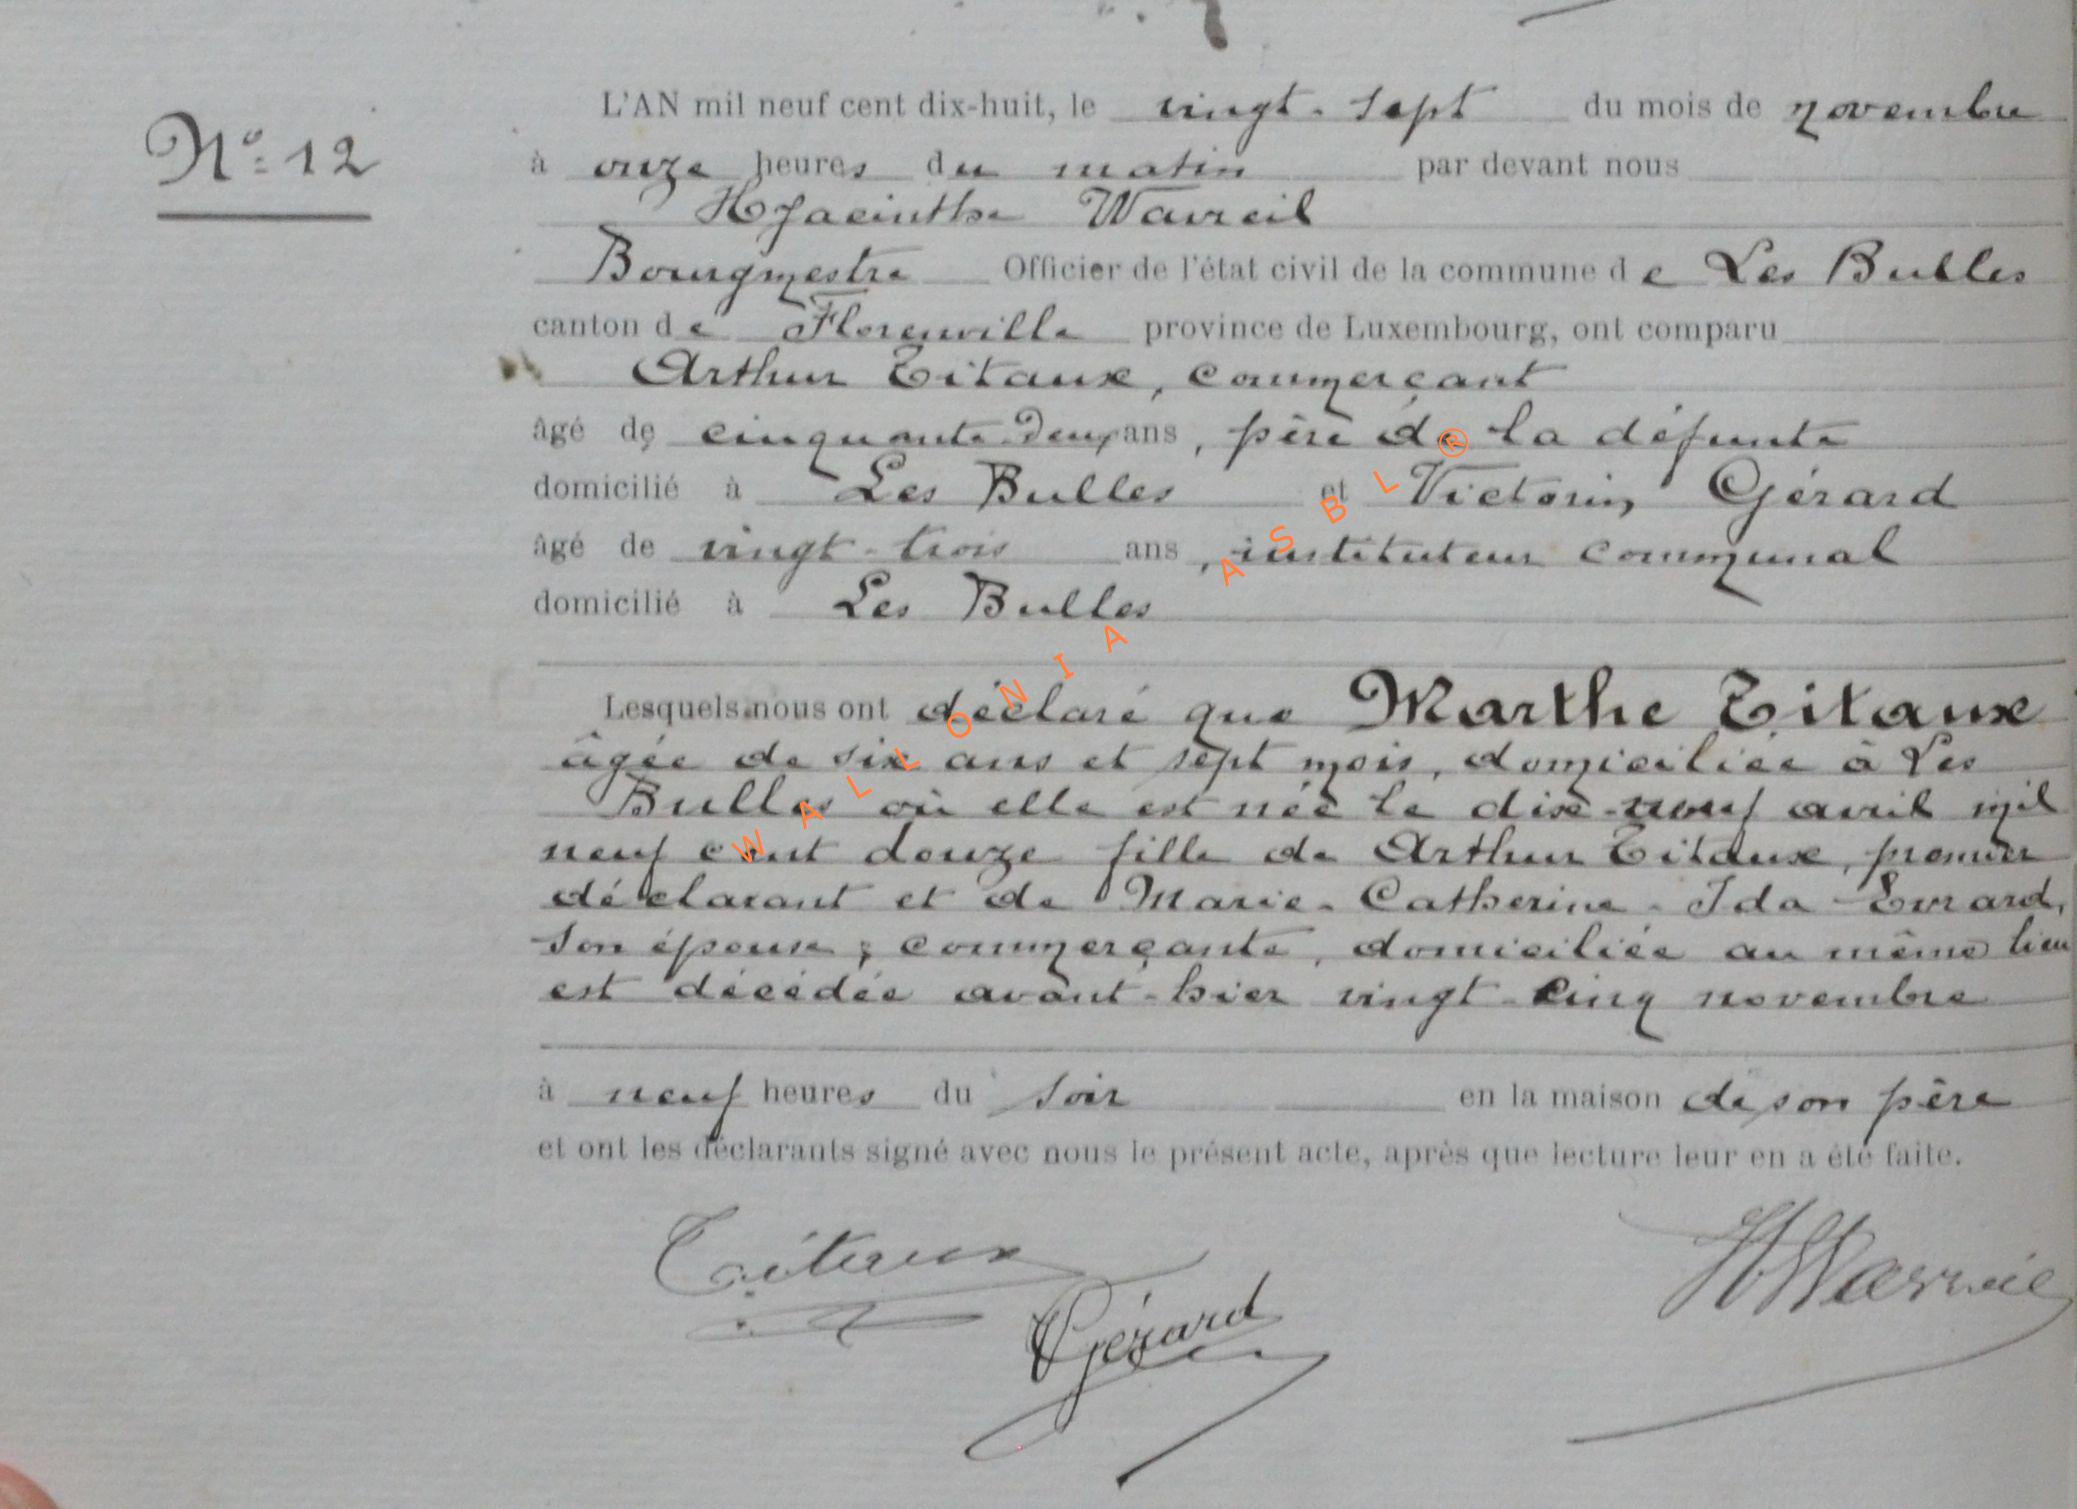 Nº 12
L'AN mil neuf cent dix-huit, le vingt-sept du mois de novembre
à onze heures du matin par devant nous
Hyacinthe Wavreil
Bourgmestre Officier de l'état civil de la commune de Les Bulles
canton de Florenville province de Luxembourg, ont comparu
Arthur Titaux, commerçant
âgé de cinquante-deux ans, père de la défunte
domicilié à Les Bulles et Victorin Gérard
âgé de vingt-trois ans, instituteur communal
domicilié à Les Bulles
Lesquels nous ont déclaré que Marthe Titaux
âgée de six ans et sept mois, domiciliée à Les
Bulles où elle est née le dix-neuf avril mil
neuf cent douze fille de Arthur Titaux, premier
déclarant et de Marie-Catherine-Ida Evrard,
son épouse, commerçante, domiciliée au même lieu
est décédée avant-hier vingt-cinq novembre
à neuf heures du soir en la maison de son père
et ont les déclarants signé avec nous le présent acte, après que lecture leur en a été faite.
Titaux
Gérard
H Wavreil
WALLONIA ASBL ®